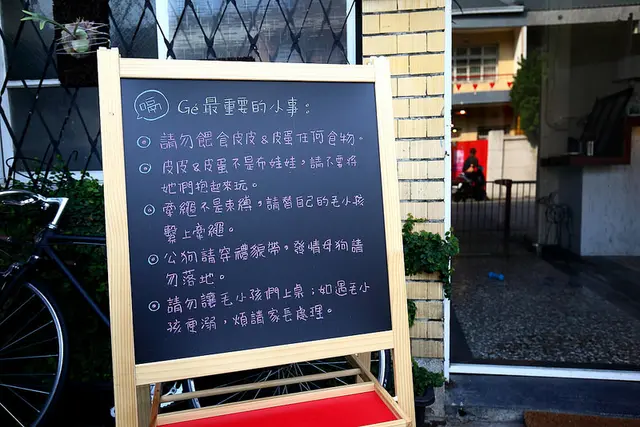 嗝 Gé 最重要的小事：
請勿餵食皮皮&皮蛋任何食物。
皮皮&皮蛋不是布娃娃，請不要將
她們抱起來玩。
牽繩不是束縛，請替自己的毛小孩
繫上牽繩。
公狗請穿禮貌帶，發情母狗請
勿落地。
請勿讓毛小孩們上桌；如遇毛小
孩便溺，煩請家長處理。